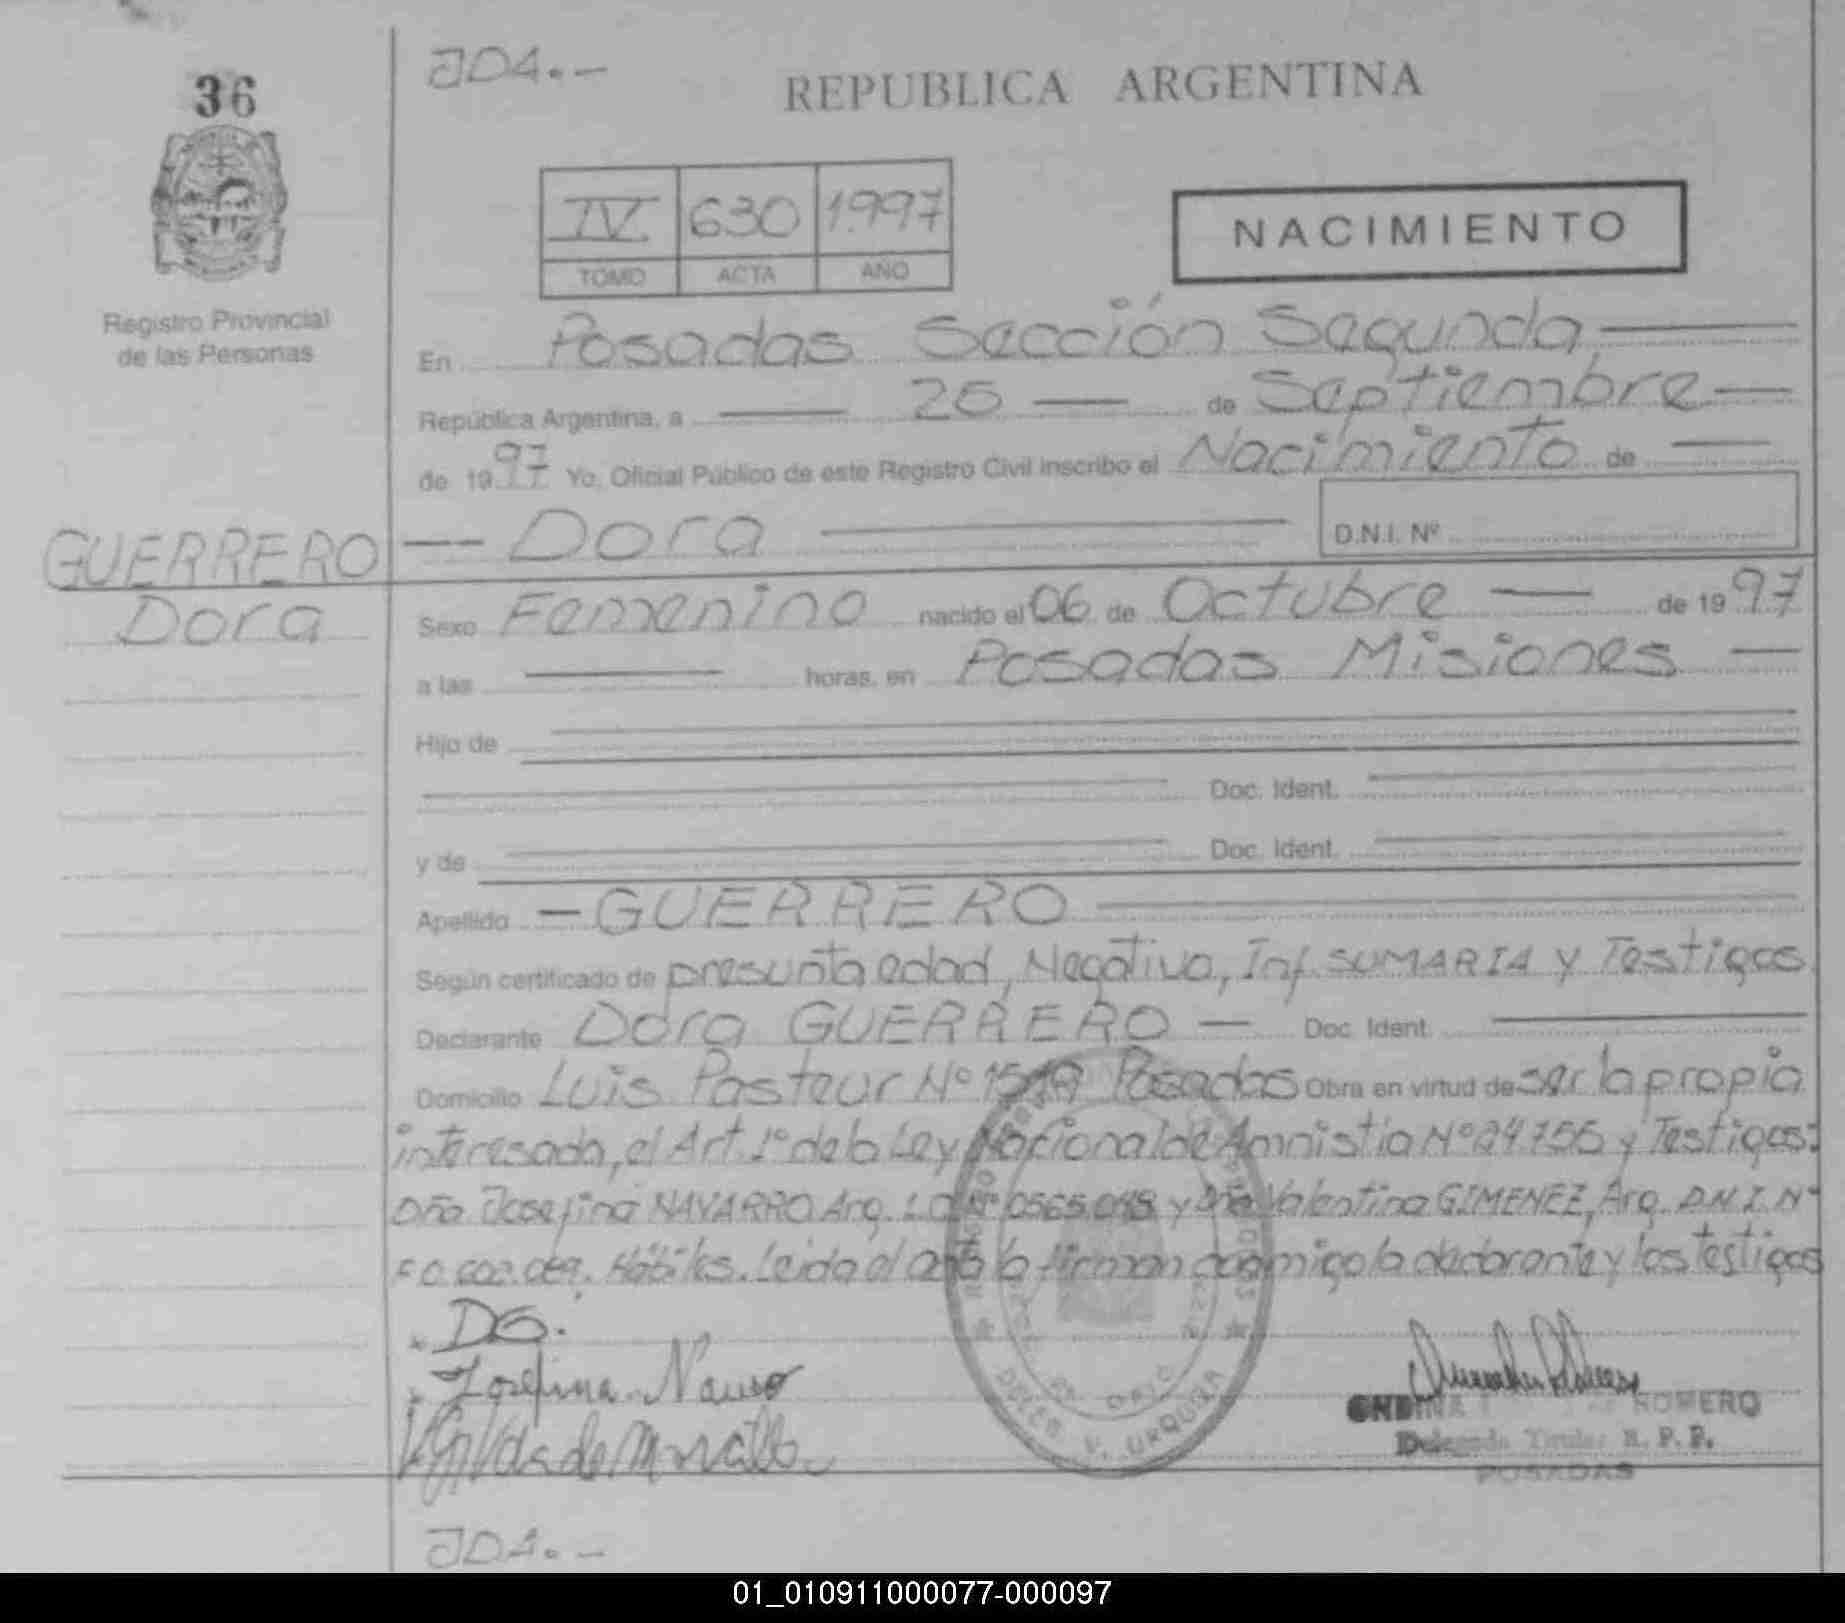 JDA.-
36
REPUBLICA ARGENTINA
IV 630 1997
TOMO ACTA AÑO
NACIMIENTO
Registro Provincial
de las Personas
En Posadas Sección Segunda,
República Argentina, a 26 de Septiembre
de 1997 Yo, Oficial Público de este Registro Civil inscribo el Nacimiento de
GUERRERO Dora D.N.I. Nº
Dora
Sexo Femenino nacido el 06 de Octubre de 1997
a las horas, en Posadas Misiones
Hijo de
Doc. Ident.
y de Doc. Ident.
Apellido GUERRERO
Según certificado de presunta edad, Negativo, Inf. SUMARIA y Testigos
Declarante Dora GUERRERO Doc. Ident.
Domicilio Luis Pasteur Nº Posadas Obra en virtud de ser la propia
interesada, el Art. 1º de la Ley Nacional de Amnistia Nº 24.755 y Testigos:
Dña Josefina NAVARRO Arg. L.C. Nº y Dña Valentina GIMENEZ, Arg. D.N.I. Nº
Hábiles. Leida el acta la firman conmigo la declarante y los testigos
DG.
Josefina
ROMERO
Delegada Titular R. P. P.
POSADAS
DELEG. V. URQUIZA
JDA.-
01_010911000077-000097